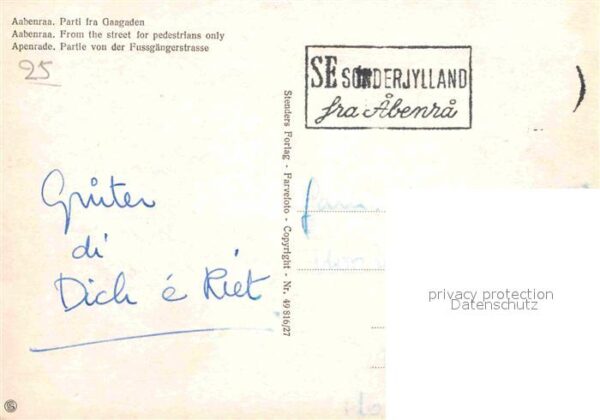 Aabenraa. Parti fra Gaagaden
Aabenraa. From the street for pedestrians only
Apenrade. Partie von der Fussgängerstrasse
25
SE SØNDERJYLLAND
fra Åbenrå
Stenders Forlag - Farvefoto - Copyright - Nr. 49 816/27
Grüter
di
Dich é Riet
privacy protection
Datenschutz